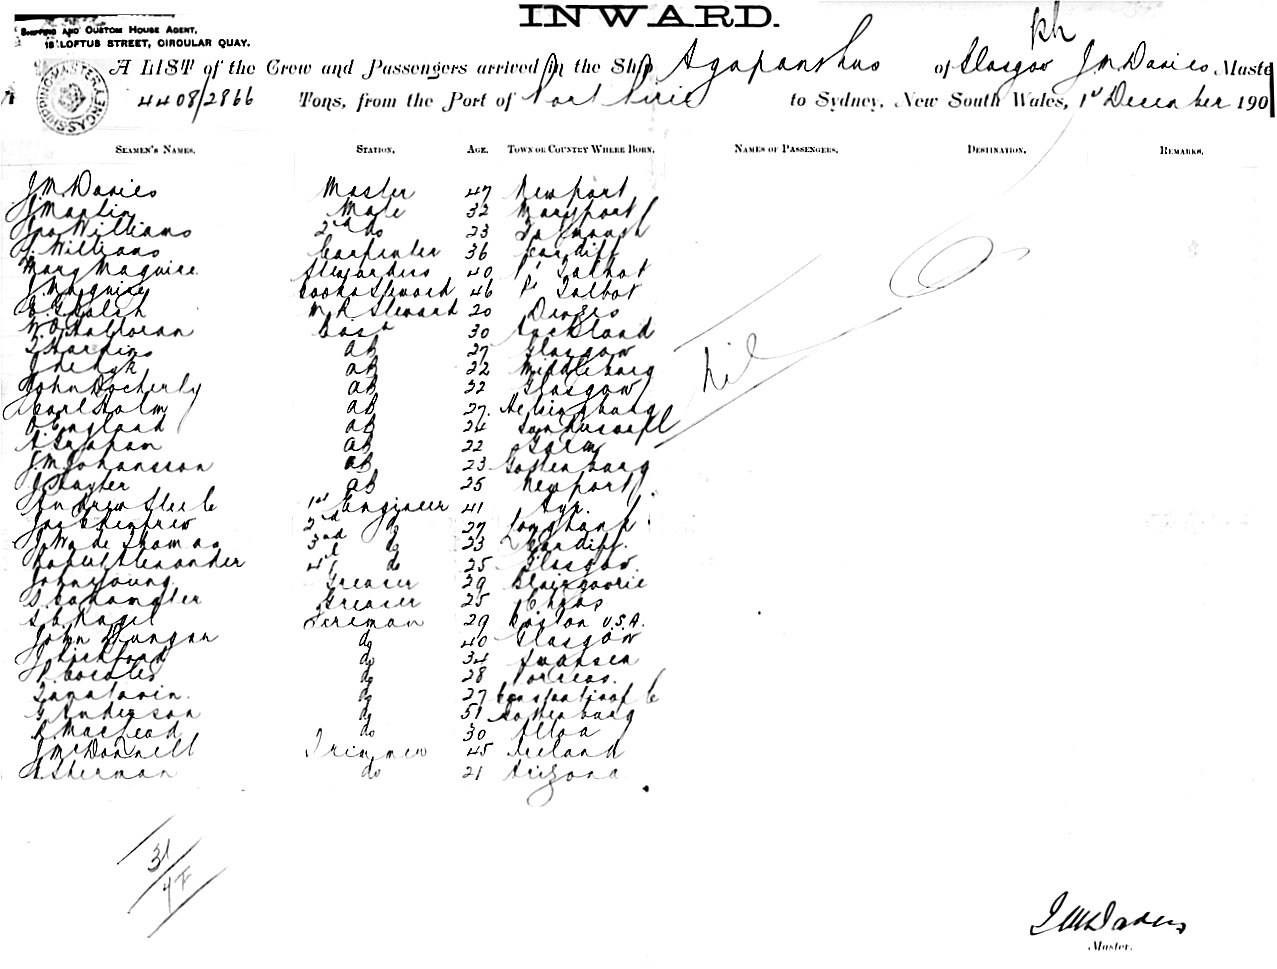 INWARD.
SHIPPING AND CUSTOM HOUSE AGENT,
18 LOFTUS STREET, CIRCULAR QUAY.
A LIST of the Crew and Passengers arrived in the Ship Agapanthus of Glasgow J M Davies Maste
SHIPPING MASTERS SYDNEY
4408/2866 Tons, from the Port of Port Pirie to Sydney, New South Wales, 1st December 190
SEAMEN'S NAMES. STATION. AGE. TOWN OR COUNTRY WHERE BORN. NAMES OF PASSENGERS. DESTINATION. REMARKS.
J M Davies Master 47 Newport
J Martin Mate 32 Maryport
Jno Williams 2nd do 23 Falmouth
J Williams Carpenter 36 Cardiff
Mary Maguire Stewardess 40 Pt Talbot
J Maguire Cook & Steward 46 Pt Talbot
M R Steward 20
W O'Halloran 30 Auckland
T Harkins AB 27 Glasgow
AB 22 Middleburg
John Docherty AB 22 Glasgow
Carl Holm AB 27 Helsingborg
England AB 24
A Graham AB 22
J M Johansson AB 23 Gothenburg
AB 25 Newport
Andrew Steele 1st Engineer 41 Ayr.
Jas Sheddrew 2nd do 27
J Wade Thomas 3rd do 23 Cardiff.
Robert Alexander 4th do 25 Glasgow.
John Young Greaser 29 Blairgowrie
Greaser 25
S. B. Nagel Fireman 29 Boston U.S.A.
John Dungan do 40 Glasgow
J Pickford do 34 Swansea
do 28
do 27 Constantinople
G Anderson do 51 Gothenburg
R MacLeod do 30 Alloa
J McDonnell Trimmer 45 Ireland
A Sherman do 21 Arizona
Nil
31
J M Davies
Master.